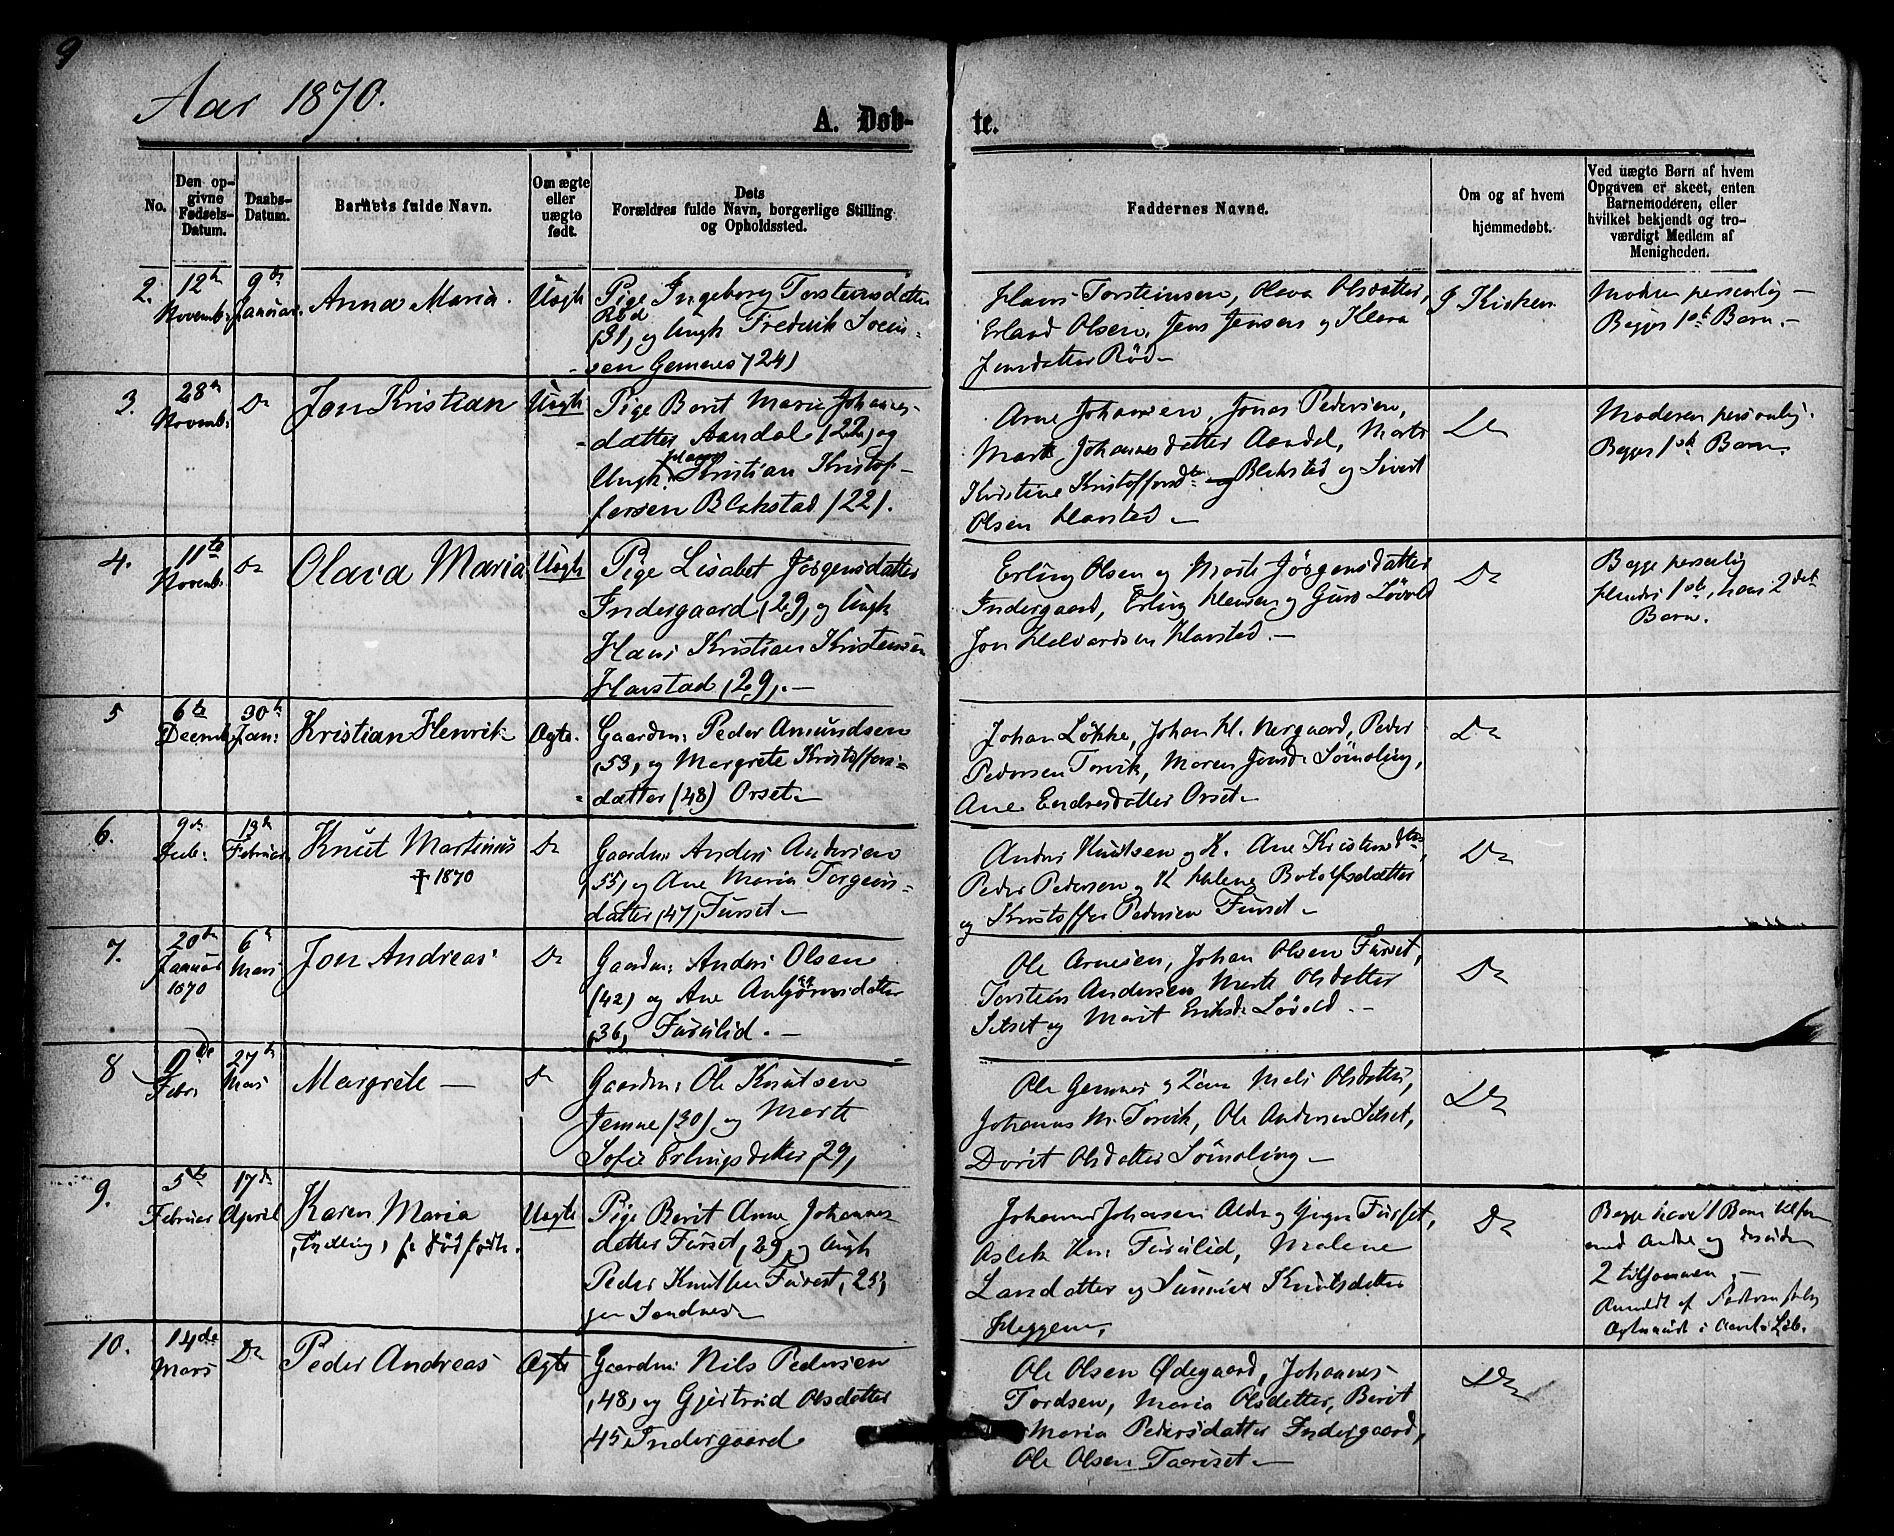 9
Aar 1870.
A. Døb-
te.
No.
Den op-
givne
Fødsels-
Datum.
Daabs-
Datum.
Barnets fulde Navn.
Om ægte
eller
uægte
født.
Dets
Forældres fulde Navn, borgerlige Stilling
og Opholdssted.
Faddernes Navne.
Om og af hvem
hjemmedøbt.
Ved uægte Børn af hvem
Opgaven er skeet, enten
Barnemoderen, eller
hvilket bekjendt og tro-
værdigt Medlem af
Menigheden.
2.
12te
Novemb.
9de
Januar.
Anna Maria.
Uægte
Pige Ingeborg Torsteinsdatter
Rød
(31) og Ungk Frederik
sen Gemnes (24)
Hans Torsteinsen, Olava Olsdatter,
Erland Olsen, Jens Jensen og
Jensdatter Rød -
I Kirken
Modren personlig -
Begges 1ste Barn. -
3.
28de
Novemb.
Do
Jon Kristian
Uægte
Pige Berit Marie Johannes-
datter Aandal (22) og
Ungk. Kristian Kristof-
fersen Blekstad (22).
Arne Johansen, Jonas Pedersen,
Marte Johannesdatter Aandal, Marte
Kristine Kristoffersdtr Blekstad og Sivert
Olsen Harstad -
Do
Moderen personlig.
Begges 1ste Barn.
4.
11te
Novemb.
Do
Olava Maria
Uægte
Pige Lisabet Jørgensdatter
Indergaard (29) og Ungk
Hans Kristian Kristensen
Harstad (29). -
Erling Olsen og Marte Jørgensdatter
Indergaard, Erling Hansen og Guro Løvold
Jon Halvardsen Harstad. -
Do
Begge personlig
Hendes 1ste, hans 2det
Barn.
5
6te
Decemb.
30te
Jan:
Kristian Henrik
Ægte.
Gaardm: Peder Amundsen
(53) og Margrete Kristoffers-
datter (48) Orset -
Johan Løkke, Johan H. Nergaard, Peder
Pedersen Torvik, Maren Jonsd. Sømoling,
Ane Endresdatter Orset -
Do
6.
9de
Decb:
13de
Februar
Knut Martinus
† 1870
Do
Gaardm: Anders Andersen
(55) og Ane Maria Torgeirs-
datter (47) Furset -
Anders Knutsen og K. Ane Kristensdtr,
Peder Pedersen og K Malene Botolfsdatter
og Kristoffer Pedersen Furset -
Do
7.
20de
Januar
1870
6te
Mars
Jon Andreas
Do
Gaardm: Anders Olsen
(42) og Ane Asbjørnsdatter
(36) Farulid. -
Ole Arnesen, Johan Olsen Furset,
Torstein Andersen, Marte Olsdatter
Silset og Marit Eriksd. Løvold. -
Do
8
9de
Febr:
27de
Mars
Margrete -
Do
Gaardm: Ole Knutsen
Jemne (30) og Marte
Sofie Erlingsdatter (29)
Ole Gemnes og Mali Olsdatter,
Johannes M. Torvik, Ole Andersen Silset,
Dorit Olsdatter Sømoling -
Do
9.
5te
Februar
17de
April
Karen Maria
(Tvilling) dødfødt.
Uægte
Pige Berit Anne Johannes-
datter Furset (29) og Ungk
Peder Knutsen Furset (25)
Johannes Johansen og Furset,
Aslak Farulid, Malene
Larsdatter og Knutsdatter
Heggem.
Do
Begge have 1 Barn tilforn
med Andre og desuden
2 tilsammen -
Anmeldt af Faderen
10.
14de
Mars
Do
Peder Andreas
Ægte
Gaardm: Nils Pedersen
(48) og Gjertrud Olsdatter
45 Indergaard
Ole Olsen Ødegaard, Johannes
Tordsen, Maria Olsdatter, Berit
Maria Pedersdatter Indergaard,
Ole Olsen Taarset -
Do